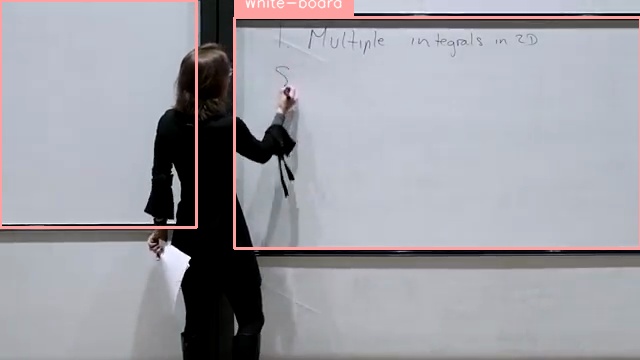 White-board
1. Multiple integrals in 2D
S